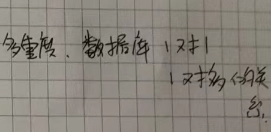 多重度、数据库 1对1
1对多的关
系